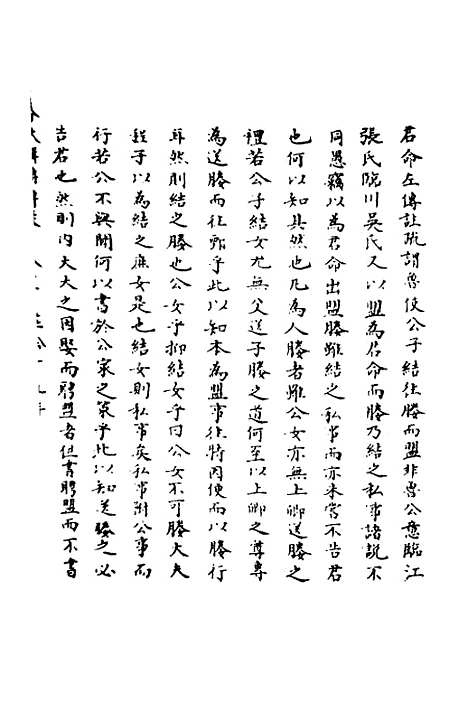 君命左傳註疏謂魯使公子結往媵而盟非魯公意臨江
張氏臨川吳氏又以盟為君命而媵乃結之私事諸說不
同愚竊以為君命出盟媵雖結之私事而亦未嘗不告君
也何以知其然也凡為人媵者雖公女亦無上卿送媵之
禮若公子結女尤無父送子媵之道何至以上卿之尊專
為送媵而往鄄乎此以知本為盟事往特因使而以媵行
耳然則結之媵也公女乎抑結女乎曰公女不可媵大夫
程子以為結之庶女是也結女則私事矣私事附公事而
行若公不與聞何以書於公家之策乎此以知送媵之必
告君也然則內大夫之因娶而聘盟者但書聘盟而不書